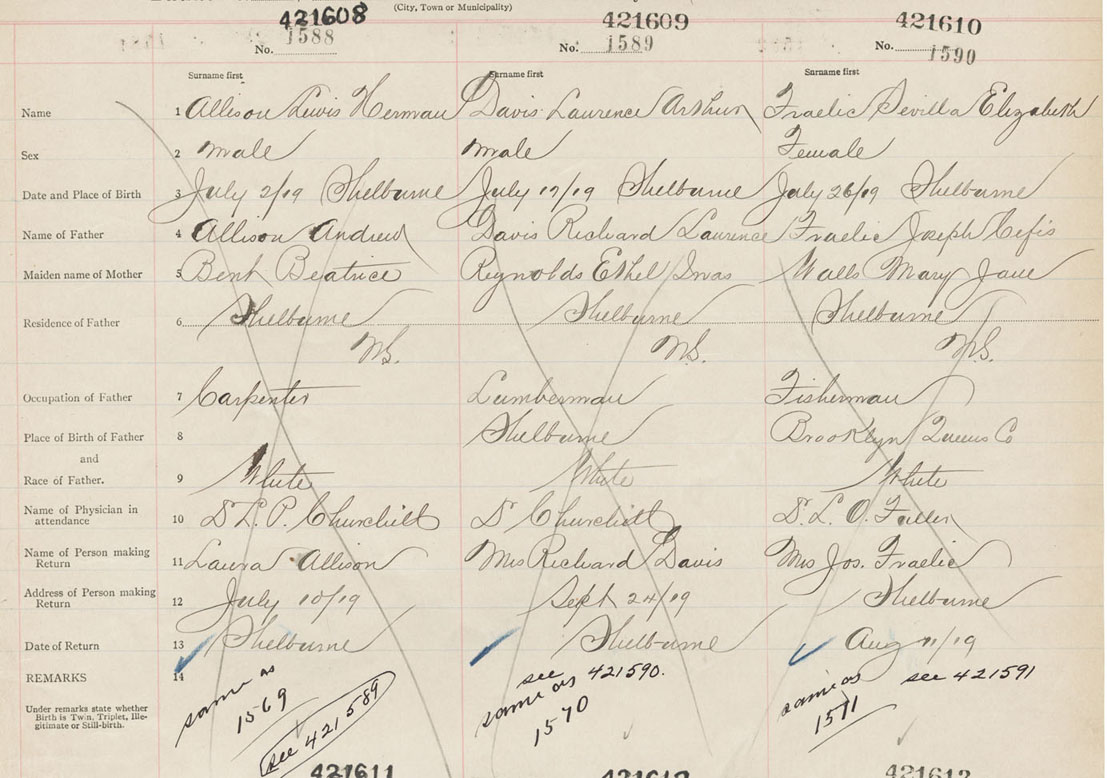 (City, Town or Municipality)
421608 421609 421610
No. 1588 No. 1589 No. 1590
Surname first Surname first Surname first
Name 1 Allison Lewis Herman Davis Laurence Arthur Fraelic Sevilla Elizabeth
Sex 2 male male Female
Date and Place of Birth 3 July 2/19 Shelburne July 17/19 Shelburne July 26/19 Shelburne
Name of Father 4 Allison Andrew Davis Richard Laurence Fraelic Joseph
Maiden name of Mother 5 Bent Beatrice Reynolds Ethel Walls Mary Jane
Residence of Father 6 Shelburne Shelburne Shelburne
N.S. N.S. N.S.
Occupation of Father 7 Carpenter Lumberman Fisherman
Place of Birth of Father 8 Shelburne Brooklyn Queens Co
and
Race of Father. 9 White White White
Name of Physician in
attendance 10 Dr L. P. Churchill Dr Churchill Dr. L. O. Fuller
Name of Person making
Return 11 Laura Allison Mrs Richard Davis Mrs Jos. Fraelic
Address of Person making
Return 12 July 10/19 Sept 24/19 Shelburne
Date of Return 13 Shelburne Shelburne Aug 11/19
REMARKS 14 same as see 421590. same as see 421591
1569 same as 1571
see 421589 1570
Under remarks state whether
Birth is Twin, Triplet, Ille-
gitimate or Still-birth.
421611 421612 421613